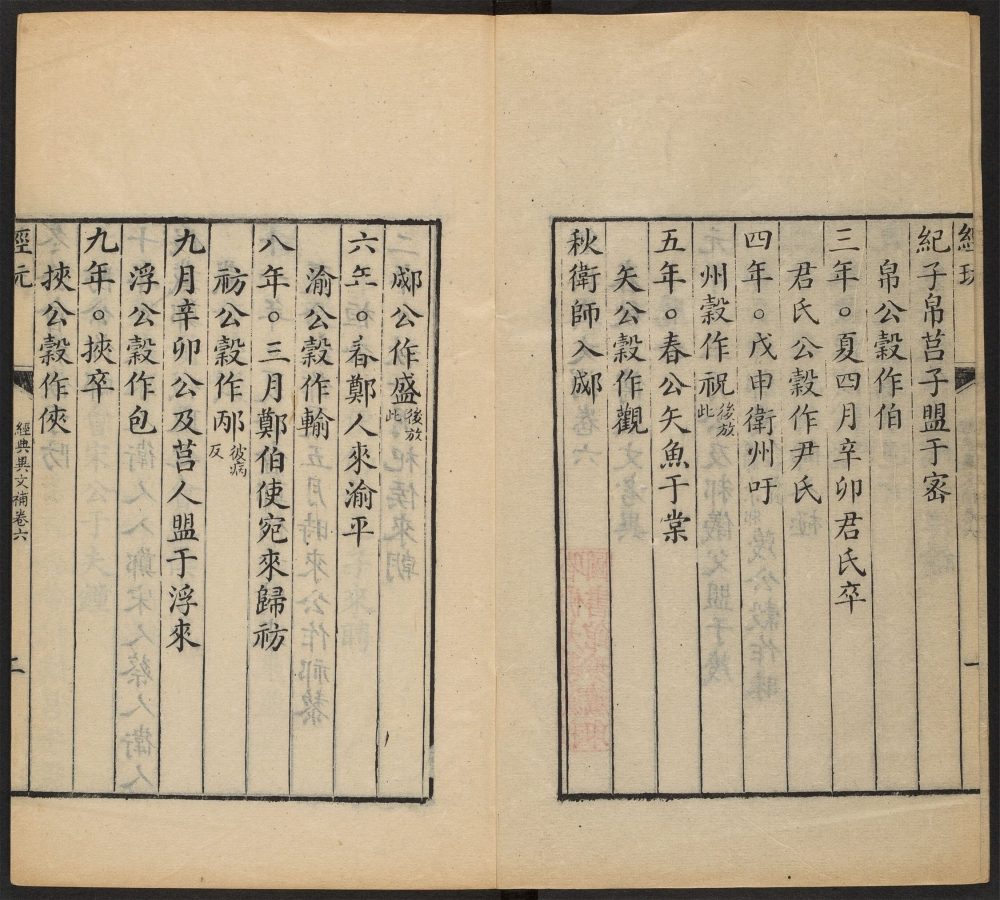 紀子帛莒子盟于密
帛公穀作伯
三年○夏四月辛卯君氏卒
君氏公穀作尹氏
四年○戊申衛州吁
州穀作祝後放此
五年○春公矢魚于棠
矢公穀作觀
秋衛師入郕
一
郕公作盛後放此
六年○春鄭人來渝平
渝公穀作輸
八年○三月鄭伯使宛來歸祊
祊公穀作邴彼病反
九月辛卯公及莒人盟于浮來
浮公穀作包
九年○挾卒
挾公穀作俠
經元
經典異文補卷六
二